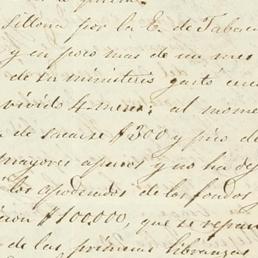 sillona por la E. de Tabasco
y en poco mas de un mes
de su ministerio gasto
vivido 4 mess: al mome
de sacarse $300 y pico de
mayores apuros y no ha de
los apoderados de los fondos
cion $100.000, que se repar
de las primeras libranzas